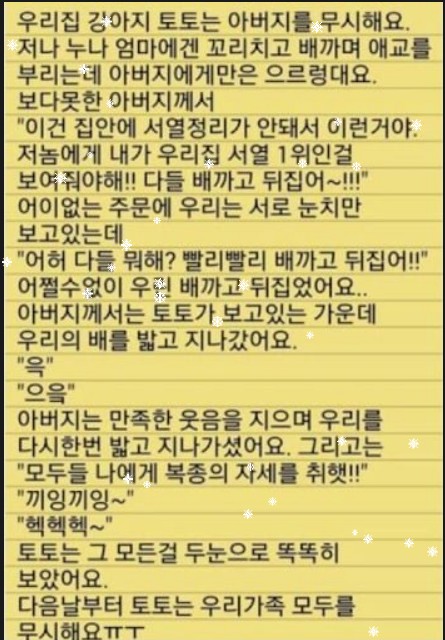 우리집 강아지 토토는 아버지를 무시해요.
저나 누나 엄마에겐 꼬리치고 배까며 애교를
부리는데 아버지에게만은 으르렁대요.
보다못한 아버지께서
"이건 집안에 서열정리가 안돼서 이런거야.
저놈에게 내가 우리집 서열 1위인걸
보여줘야해!! 다들 배까고 뒤집어~!!!"
어이없는 주문에 우리는 서로 눈치만
보고있는데
"어허 다들 뭐해? 빨리빨리 배까고 뒤집어!!"
어쩔수없이 우린 배까고 뒤집었어요..
아버지께서는 토토가 보고있는 가운데
우리의 배를 밟고 지나갔어요.
"윽"
"으윽"
아버지는 만족한 웃음을 지으며 우리를
다시한번 밟고 지나가셨어요. 그리고는
"모두들 나에게 복종의 자세를 취햇!!"
"끼잉끼잉~"
"헥헥헥~"
토토는 그 모든걸 두눈으로 똑똑히
보았어요.
다음날부터 토토는 우리가족 모두를
무시해요ㅠㅜ